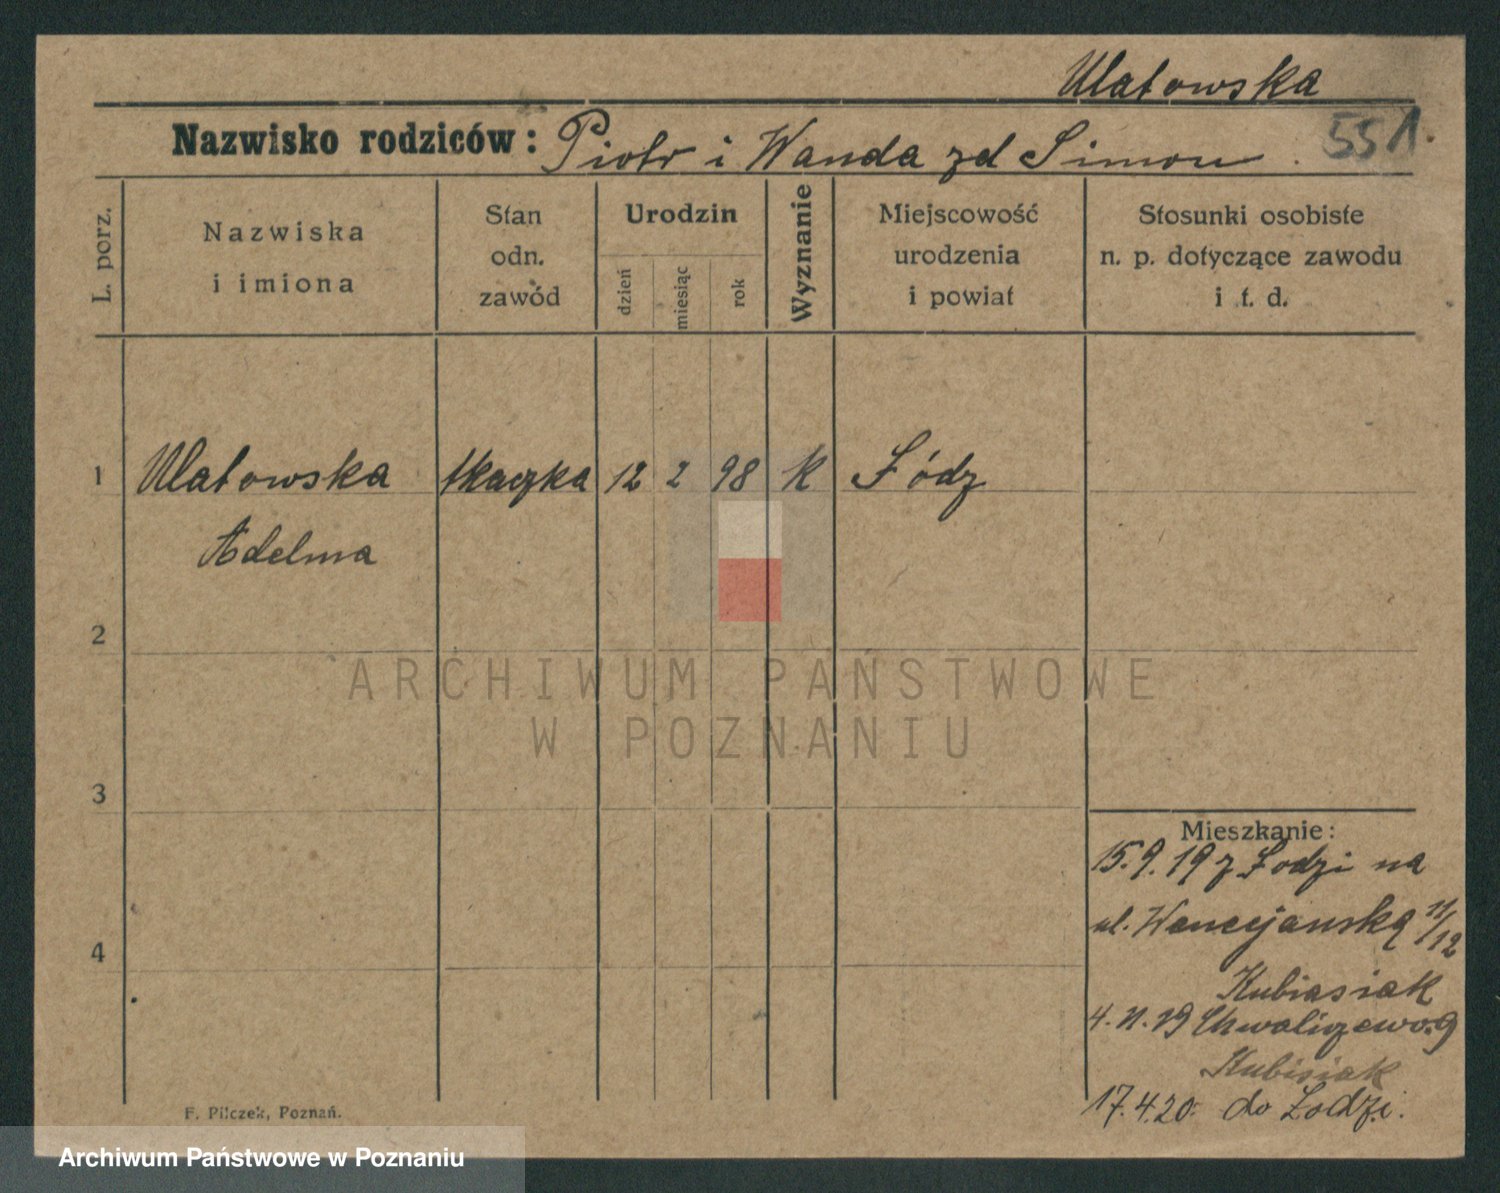 Ulatowska
Nazwisko rodziców: Piotr i Wanda zd Simon
551.
L. porz.
Nazwiska
i imiona
Stan
odn.
zawód
Urodzin
dzień
miesiąc
rok
Wyznanie
Miejscowość
urodzenia
i powiat
Stosunki osobiste
n. p. dotyczące zawodu
i t. d.
1 Ulatowska tkaczka 12 2 98 k Łódz
Adelma
2
3
4
Mieszkanie:
15.9.19 z Łodzi na
ul. Wenecjanską 11/12
Kubiasiak
4.11.19 Chwaliszewo.9
Kubisiak
17.4.20. do Łodzi.
F. Pilczek, Poznań.
ARCHIWUM PAŃSTWOWE
W POZNANIU
Archiwum Państwowe w Poznaniu